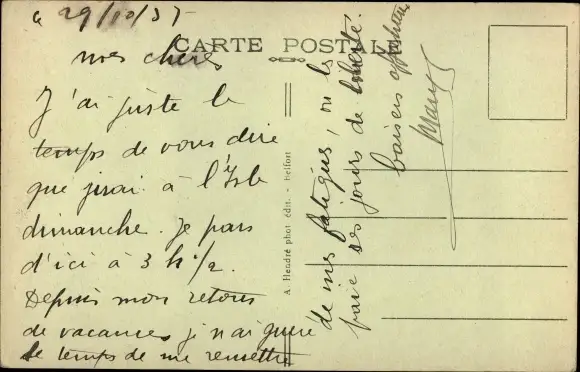 le 29/10/37
CARTE POSTALE
mes chères
J'ai juste le
temps de vous dire
que j'irai à l'Isle
dimanche. Je pars
d'ici à 3 h 1/2.
Depuis mon retour
de vacances je n'ai guère
le temps de me remettre
de mes fatigues, on les
paie ses jours de liberté.
baisers affectueux
A. Hendré phot édit. - Belfort